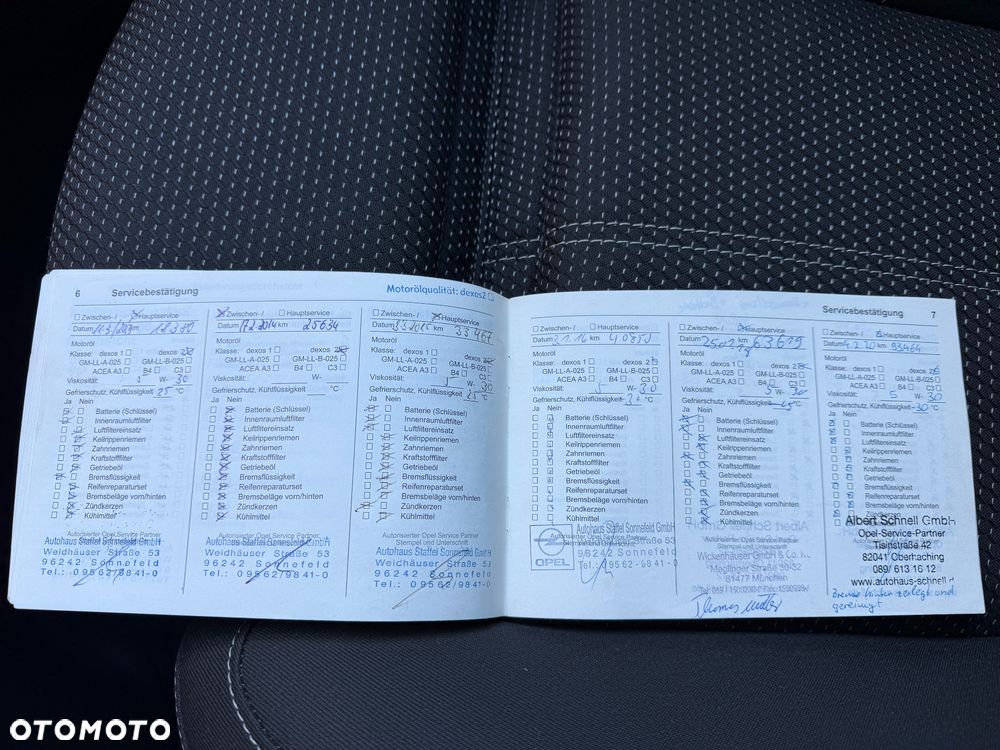 6 Servicebestätigung Motorölqualität: dexos2
Zwischen-/ Hauptservice
Datum km 18390
Motoröl
Klasse: dexos 1 dexos 2
GM-LL-A-025 GM-LL-B-025
ACEA A3 B4 C3
Viskosität: 5 W- 30
Gefrierschutz, Kühlflüssigkeit 25 °C
Ja Nein
Batterie (Schlüssel)
Innenraumluftfilter
Luftfiltereinsatz
Keilrippenriemen
Zahnriemen
Kraftstofffilter
Getriebeöl
Bremsflüssigkeit
Reifenreparaturset
Bremsbeläge vorn/hinten
Zündkerzen
Kühlmittel
Autorisierter Opel Service Partner
Stempel und Unterschrift
Autohaus Staffel Sonnefeld GmbH
Weidhäuser Straße 53
96242 Sonnefeld
Tel.: 09562/9841-0
Zwischen-/ Hauptservice
Datum 17.2.2014 km 25634
Motoröl
Klasse: dexos 1 dexos 2
GM-LL-A-025 GM-LL-B-025
ACEA A3 B4 C3
Viskosität: W-
Gefrierschutz, Kühlflüssigkeit °C
Ja Nein
Batterie (Schlüssel)
Innenraumluftfilter
Luftfiltereinsatz
Keilrippenriemen
Zahnriemen
Kraftstofffilter
Getriebeöl
Bremsflüssigkeit
Reifenreparaturset
Bremsbeläge vorn/hinten
Zündkerzen
Kühlmittel
Autorisierter Opel Service Partner
Stempel und Unterschrift
Autohaus Staffel Sonnefeld GmbH
Weidhäuser Straße 53
96242 Sonnefeld
Tel.: 09562/9841-0
Zwischen-/ Hauptservice
Datum 3.3.2015 km 33467
Motoröl
Klasse: dexos 1 dexos 2
GM-LL-A-025 GM-LL-B-025
ACEA A3 B4 C3
Viskosität: 5 W- 30
Gefrierschutz, Kühlflüssigkeit 25 °C
Ja Nein
Batterie (Schlüssel)
Innenraumluftfilter
Luftfiltereinsatz
Keilrippenriemen
Zahnriemen
Kraftstofffilter
Getriebeöl
Bremsflüssigkeit
Reifenreparaturset
Bremsbeläge vorn/hinten
Zündkerzen
Kühlmittel
Autorisierter Opel Service Partner
Stempel und Unterschrift
Autohaus Staffel Sonnefeld GmbH
Weidhäuser Straße 53
96242 Sonnefeld
Tel.: 09562/9841-0
Servicebestätigung 7
Zwischen-/ Hauptservice
Datum km 40850
Motoröl
Klasse: dexos 1 dexos 2
GM-LL-A-025 GM-LL-B-025
ACEA A3 B4 C3
Viskosität: 5 W- 30
Gefrierschutz, Kühlflüssigkeit °C
Ja Nein
Batterie (Schlüssel)
Innenraumluftfilter
Luftfiltereinsatz
Keilrippenriemen
Zahnriemen
Kraftstofffilter
Getriebeöl
Bremsflüssigkeit
Reifenreparaturset
Bremsbeläge vorn/hinten
Zündkerzen
Kühlmittel
Autorisierter Opel Service Partner
Stempel und Unterschrift
OPEL
Autohaus Staffel Sonnefeld GmbH
Weidhäuser Straße 53
96242 Sonnefeld
Tel.: 09562/9841-0
Zwischen-/ Hauptservice
Datum km 63619
Motoröl
Klasse: dexos 1 dexos 2
GM-LL-A-025 GM-LL-B-025
ACEA A3 B4 C3
Viskosität: 5 W- 30
Gefrierschutz, Kühlflüssigkeit °C
Ja Nein
Batterie (Schlüssel)
Innenraumluftfilter
Luftfiltereinsatz
Keilrippenriemen
Zahnriemen
Kraftstofffilter
Getriebeöl
Bremsflüssigkeit
Reifenreparaturset
Bremsbeläge vorn/hinten
Zündkerzen
Kühlmittel
Autorisierter Opel Service Partner
Stempel und Unterschrift
Wickenhäuser GmbH & Co. KG
Meglinger Straße 30-32
81477 München
Zwischen-/ Hauptservice
Datum 4.2.20 km 93464
Motoröl
Klasse: dexos 1 dexos 2
GM-LL-A-025 GM-LL-B-025
ACEA A3 B4 C3
Viskosität: 5 W- 30
Gefrierschutz, Kühlflüssigkeit -30 °C
Ja Nein
Batterie (Schlüssel)
Innenraumluftfilter
Luftfiltereinsatz
Keilrippenriemen
Zahnriemen
Kraftstofffilter
Getriebeöl
Bremsflüssigkeit
Reifenreparaturset
Bremsbeläge vorn/hinten
Albert Schnell GmbH
Opel-Service-Partner
Tisinstraße 42
82041 Oberhaching
089/ 613 16 12
www.autohaus-schnell.d
Bremse hinten zerlegt und
gereinigt
OTOMOTO